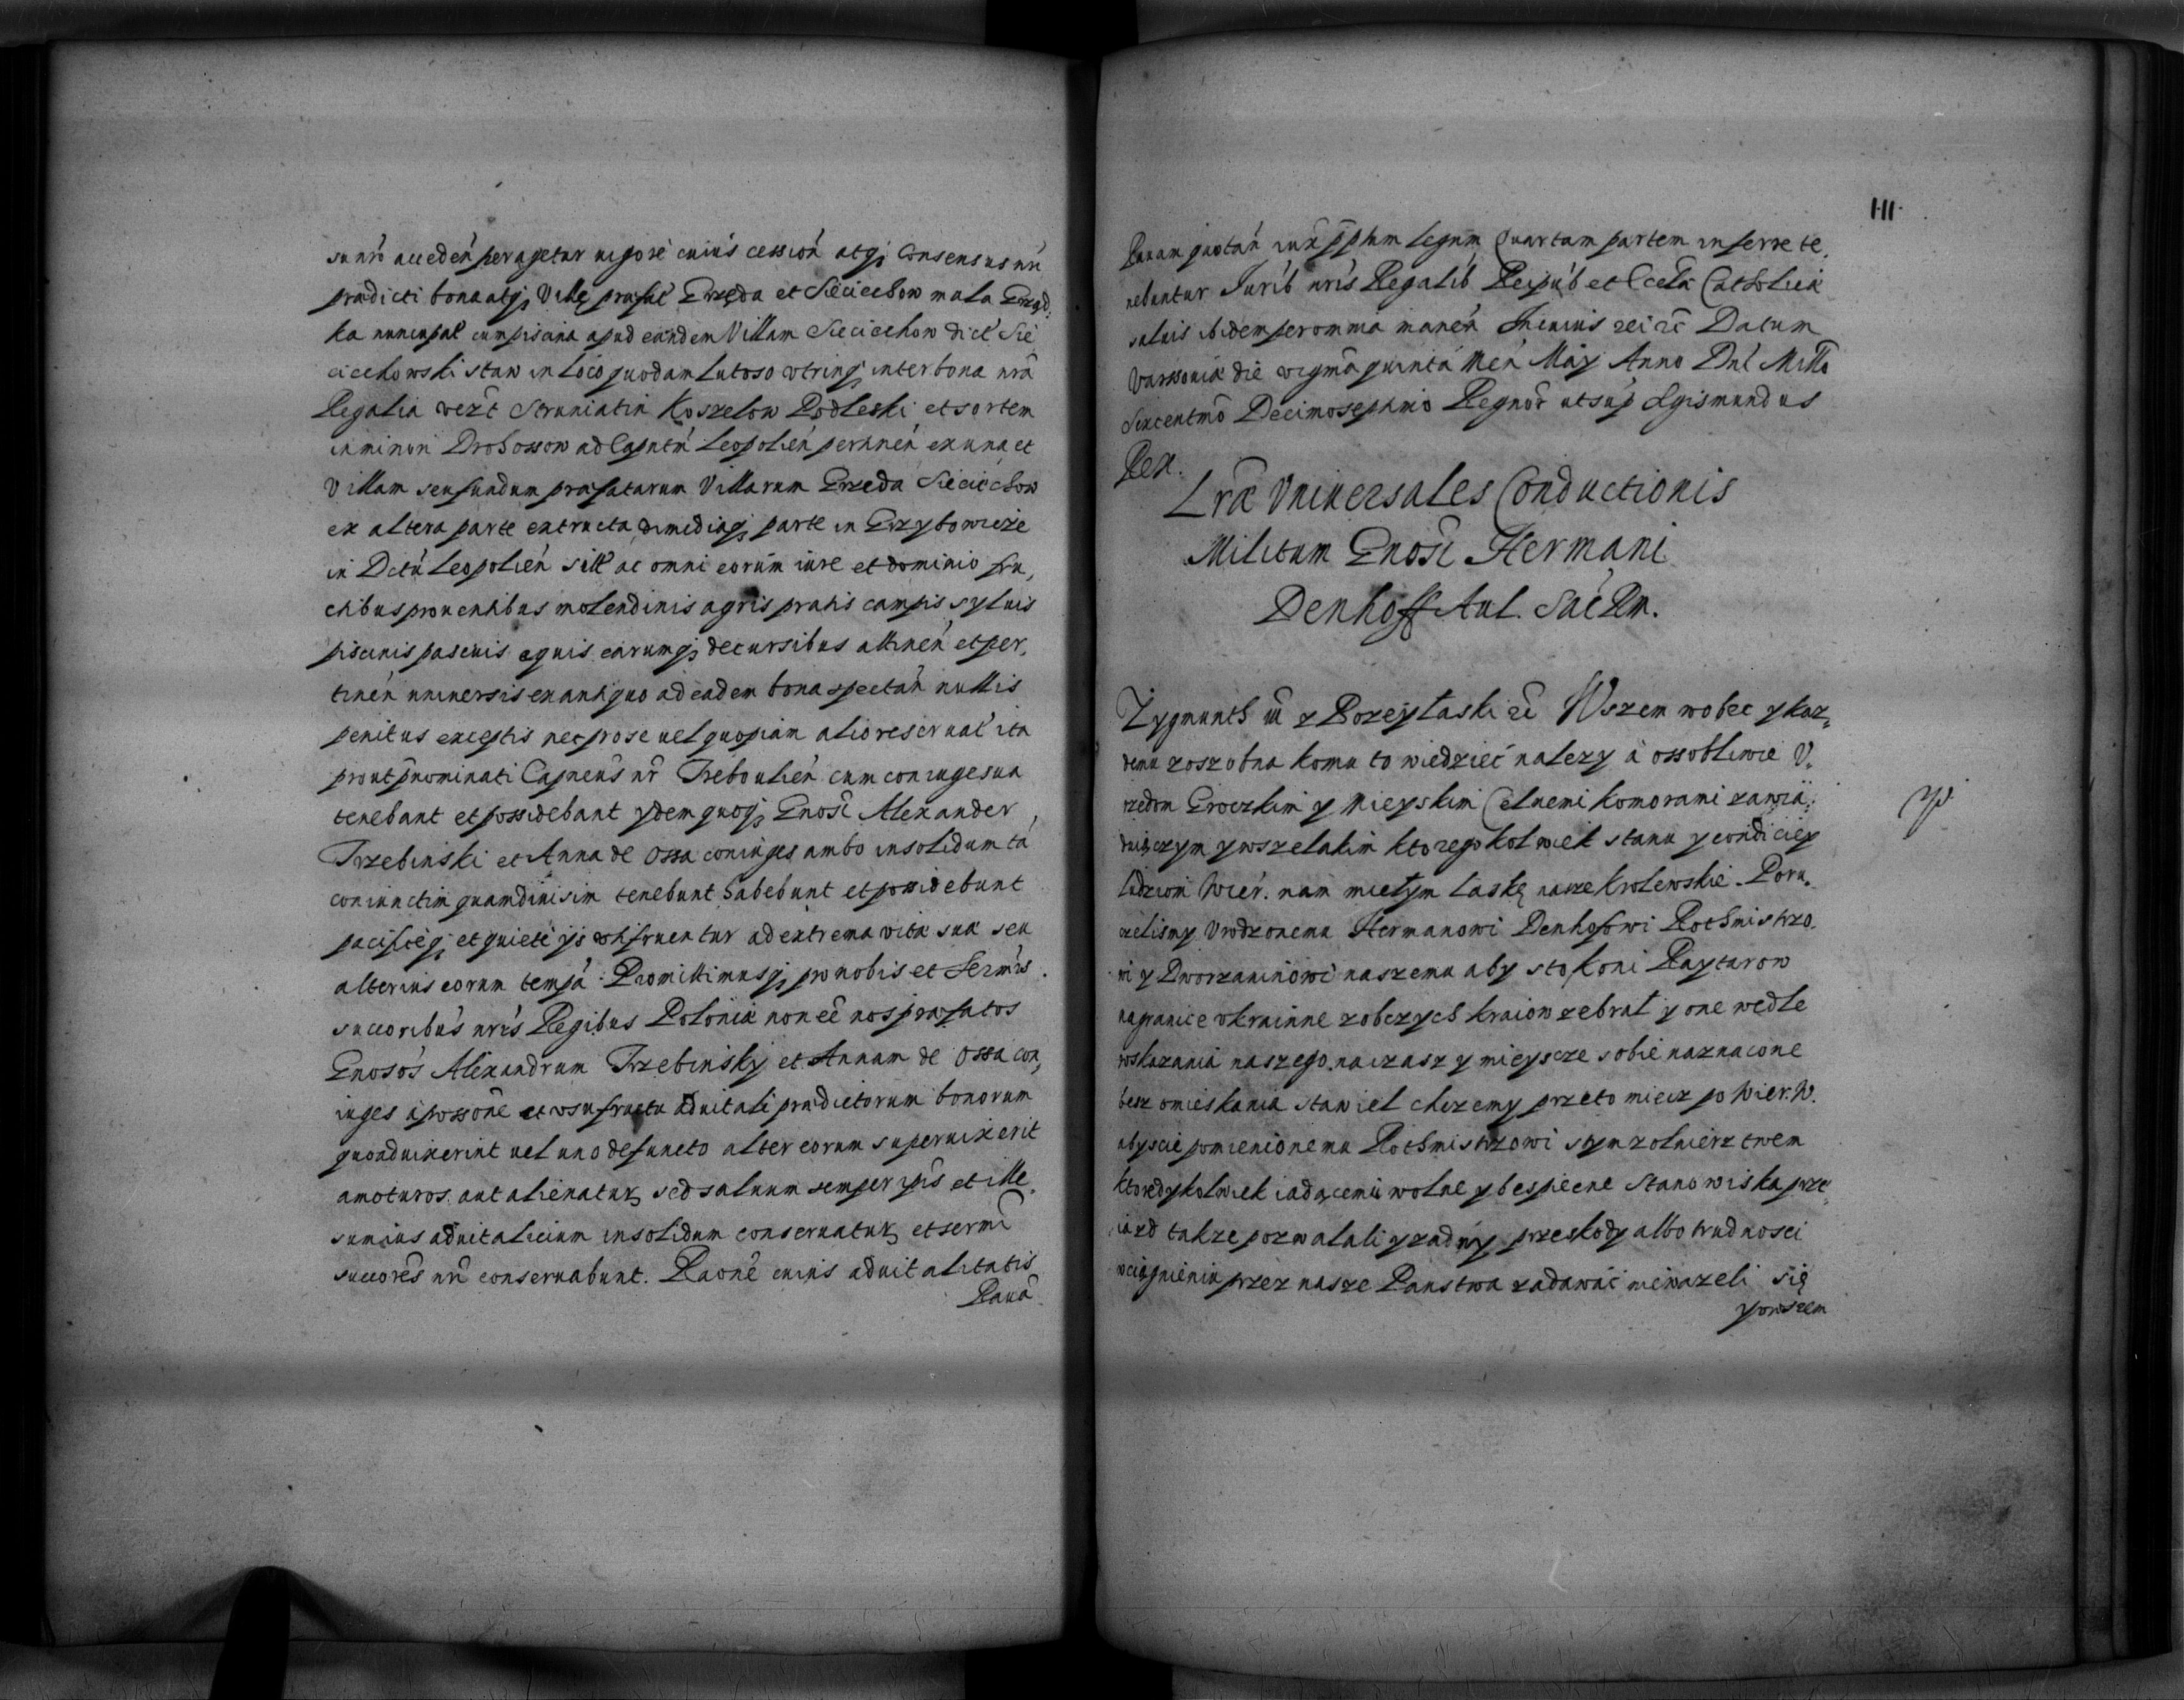 su nro acceden peragetur uigore cuius cession atq; Consensus nri
prædicti bona atq; Villę præfat Grzęda et Sieciechow mala Grząd,
ka nuncupat cum piscina apud eandem Villam Sieciechow dict Sie
ciechowski staw in loco quodam lutoso utrinq; inter bona nra
Regalia verst Struniatin Koszelow Podleski et sortem
in minori Drohossow ad Capntm Leopolien pertinen ex una et
Villam seu fundum præfatarum Villarum Grzeda Sieciechow
ex altera parte extructa, dimediaq; parte in Grzybowicze
in Dctu Leopolien sitt ac omni eorum iure et dominio fru,
ctibus prouentibus molendinis agris pratis campis syluis
piscinis pascuis aquis earumq; decursibus attinen et per,
tinen uniuersis ex antiquo ad eadem bona spectan nullis
penitus exceptis nec pro se uel quopiam alio reseruat ita
prout pnominati Capneus nr Treboulien cum coniuge sua
tenebant et possidebant ydem quoq; Gnosi Alexander
Trzebinski et Anna de Ossa coniuges ambo insolidum ta
coniunctim quam diuisim tenebunt habebunt et possidebunt
pacificeq; et quiete ijs utifruentur ad extrema vitæ suæ seu
alterius eorum tempa. Promittimusq; pro nobis et Sermis
succoribus nris Regibus Poloniæ non eē nos præfatos
Gnosos Alexandrum Trzebinsky et Annam de Ossa con,
iuges a possone et usufructu aduitali prædictorum bonorum
quoad uixerint uel uno defuncto alter eorum superuixerit
amoturos aut alienatur sed saluum semper ipis et ille
sum ius aduitalicium insolidum conseruatur et sermi
succores nri conseruabunt. Raone cuius aduitalitatis
Rauā
Rauam quotan iux pptum legum Quartam partem inferre te,
nebuntur Jurib nris Regalib Reipub et Eccłæ Catholicæ
saluis ibidem per omnia manen In cuius rei rc Datum
Varsouiæ die vigma quinta Men Maÿ Anno Dni Millo
Sexcentmo Decimoseptimo Regnor ut sup Sgismundus
Rex.
III
Lræ Vniuersales Conductionis
Militum Gnosi Hermani
Denhoff Aul. Sac Rm.
Zygmunth iii z Bozeÿ łaski rc Wszem wobec y kaz,
demu zoszobna komu to wiedziec nalezy a ossobliwie V,
rzedom Groczkim y Mieyskim Celnemi komorami zawia,
duiączym y wszelakim ktoregokolwiek stanu y condiciey
ludziom Wier. nam miełym laskę nasze krolewskie. Poru,
czelismy Vrodzonemu Hermanowi Denhofowi Rothmistrzo,
wi y Dworzaninowi naszemu aby sto koni Raytarow
na granice vkrainne z obczych kraiow zebrał y one wedle
wskazania naszego na czasz y mieyscze sobie naznacone
besz omieskania stawiel chczemy przeto miecz po Wier. W.
abyscie pomienionemu Rothmistrzowi s tym zolnierztwem
ktoredykolwiek iadącemu wolne y bespiecne Stanowiska prze
iazd takze pozwalali y zadny przeskody albo trudnosci
w ciągnieniu przez nasze Panstwa zadawać niewazeli się
y owszem